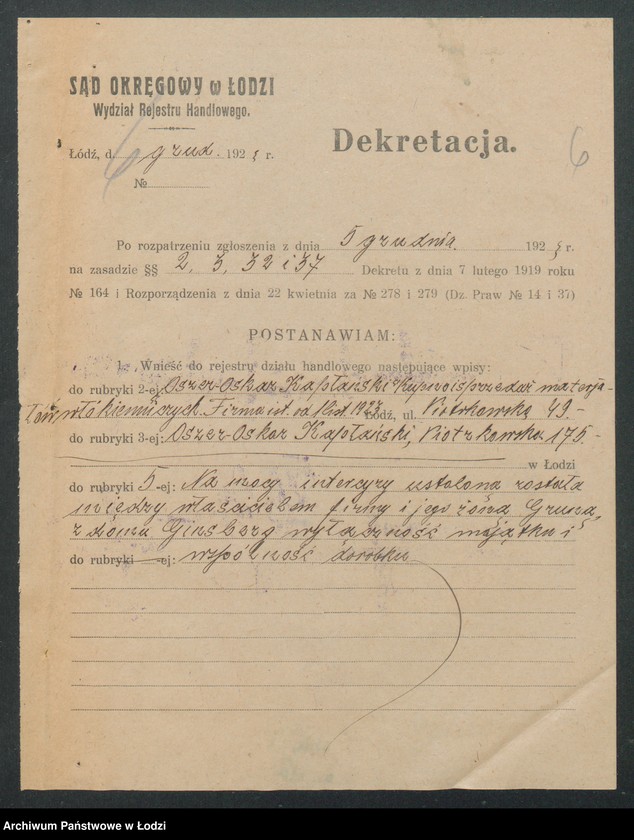 SĄD OKRĘGOWY w ŁODZI
Wydział Rejestru Handlowego.
Dekretacja.
6
Łódź, d. 6 grud. 192 r.
№
Po rozpatrzeniu zgłoszenia z dnia 5 grudnia 192 r.
na zasadzie §§ 2, 3, 32 i 37 Dekretu z dnia 7 lutego 1919 roku
№ 164 i Rozporządzenia z dnia 22 kwietnia za № 278 i 279 (Dz. Praw № 14 i 37)
POSTANAWIAM:
1. Wnieść do rejestru działu handlowego następujące wpisy:
do rubryki 2-ej: Oszer-Oskar Kapłański Kupno i sprzedaż materja-
łów włókienniczych. Firma ist. od 1923 Łódź, ul. Piotrkowska 49.-
do rubryki 3-ej: Oszer-Oskar Kapłański, Piotrkowska 175.-
w Łodzi
do rubryki 5-ej: Na mocy intercyzy ustalona została
między właścicielem firmy i jego żoną
z domu Ginsberg wyłączność majątku i
do rubryki -ej: wspólność dorobku
Archiwum Państwowe w Łodzi